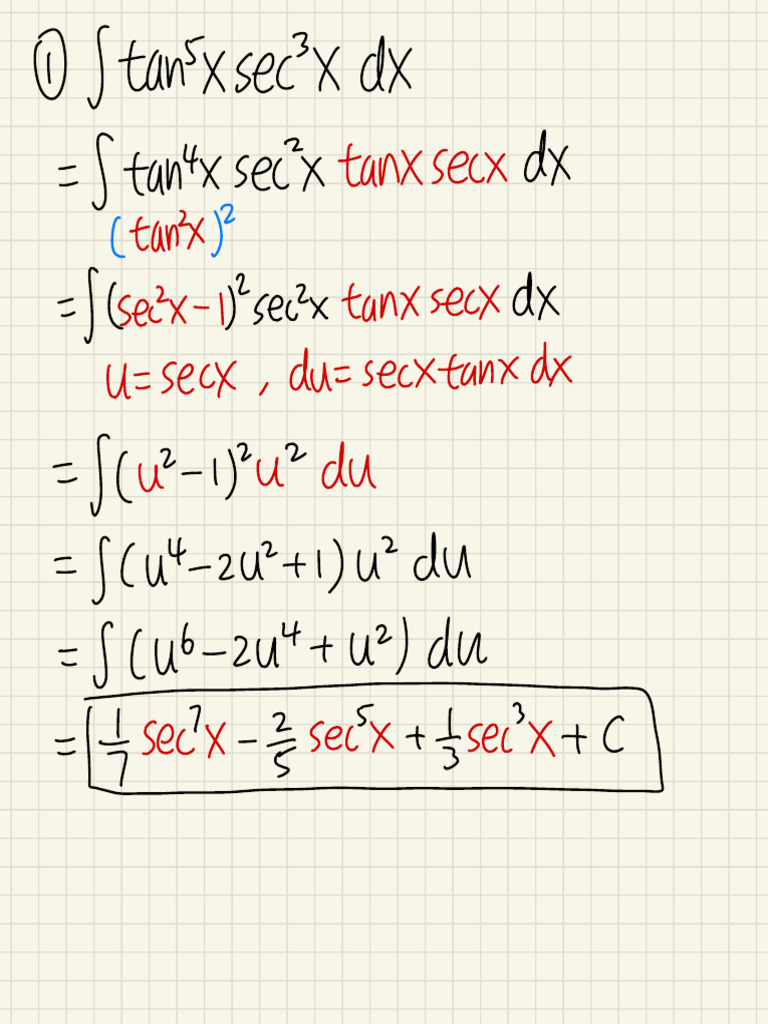 ① ∫ tan⁵x sec³x dx
= ∫ tan⁴x sec²x tanx secx dx
(tan²x)²
= ∫ (sec²x - 1)² sec²x tanx secx dx
u = secx , du = secx tanx dx
= ∫ (u² - 1)² u² du
= ∫ (u⁴ - 2u² + 1) u² du
= ∫ (u⁶ - 2u⁴ + u²) du
= 1/7 sec⁷x - 2/5 sec⁵x + 1/3 sec³x + C